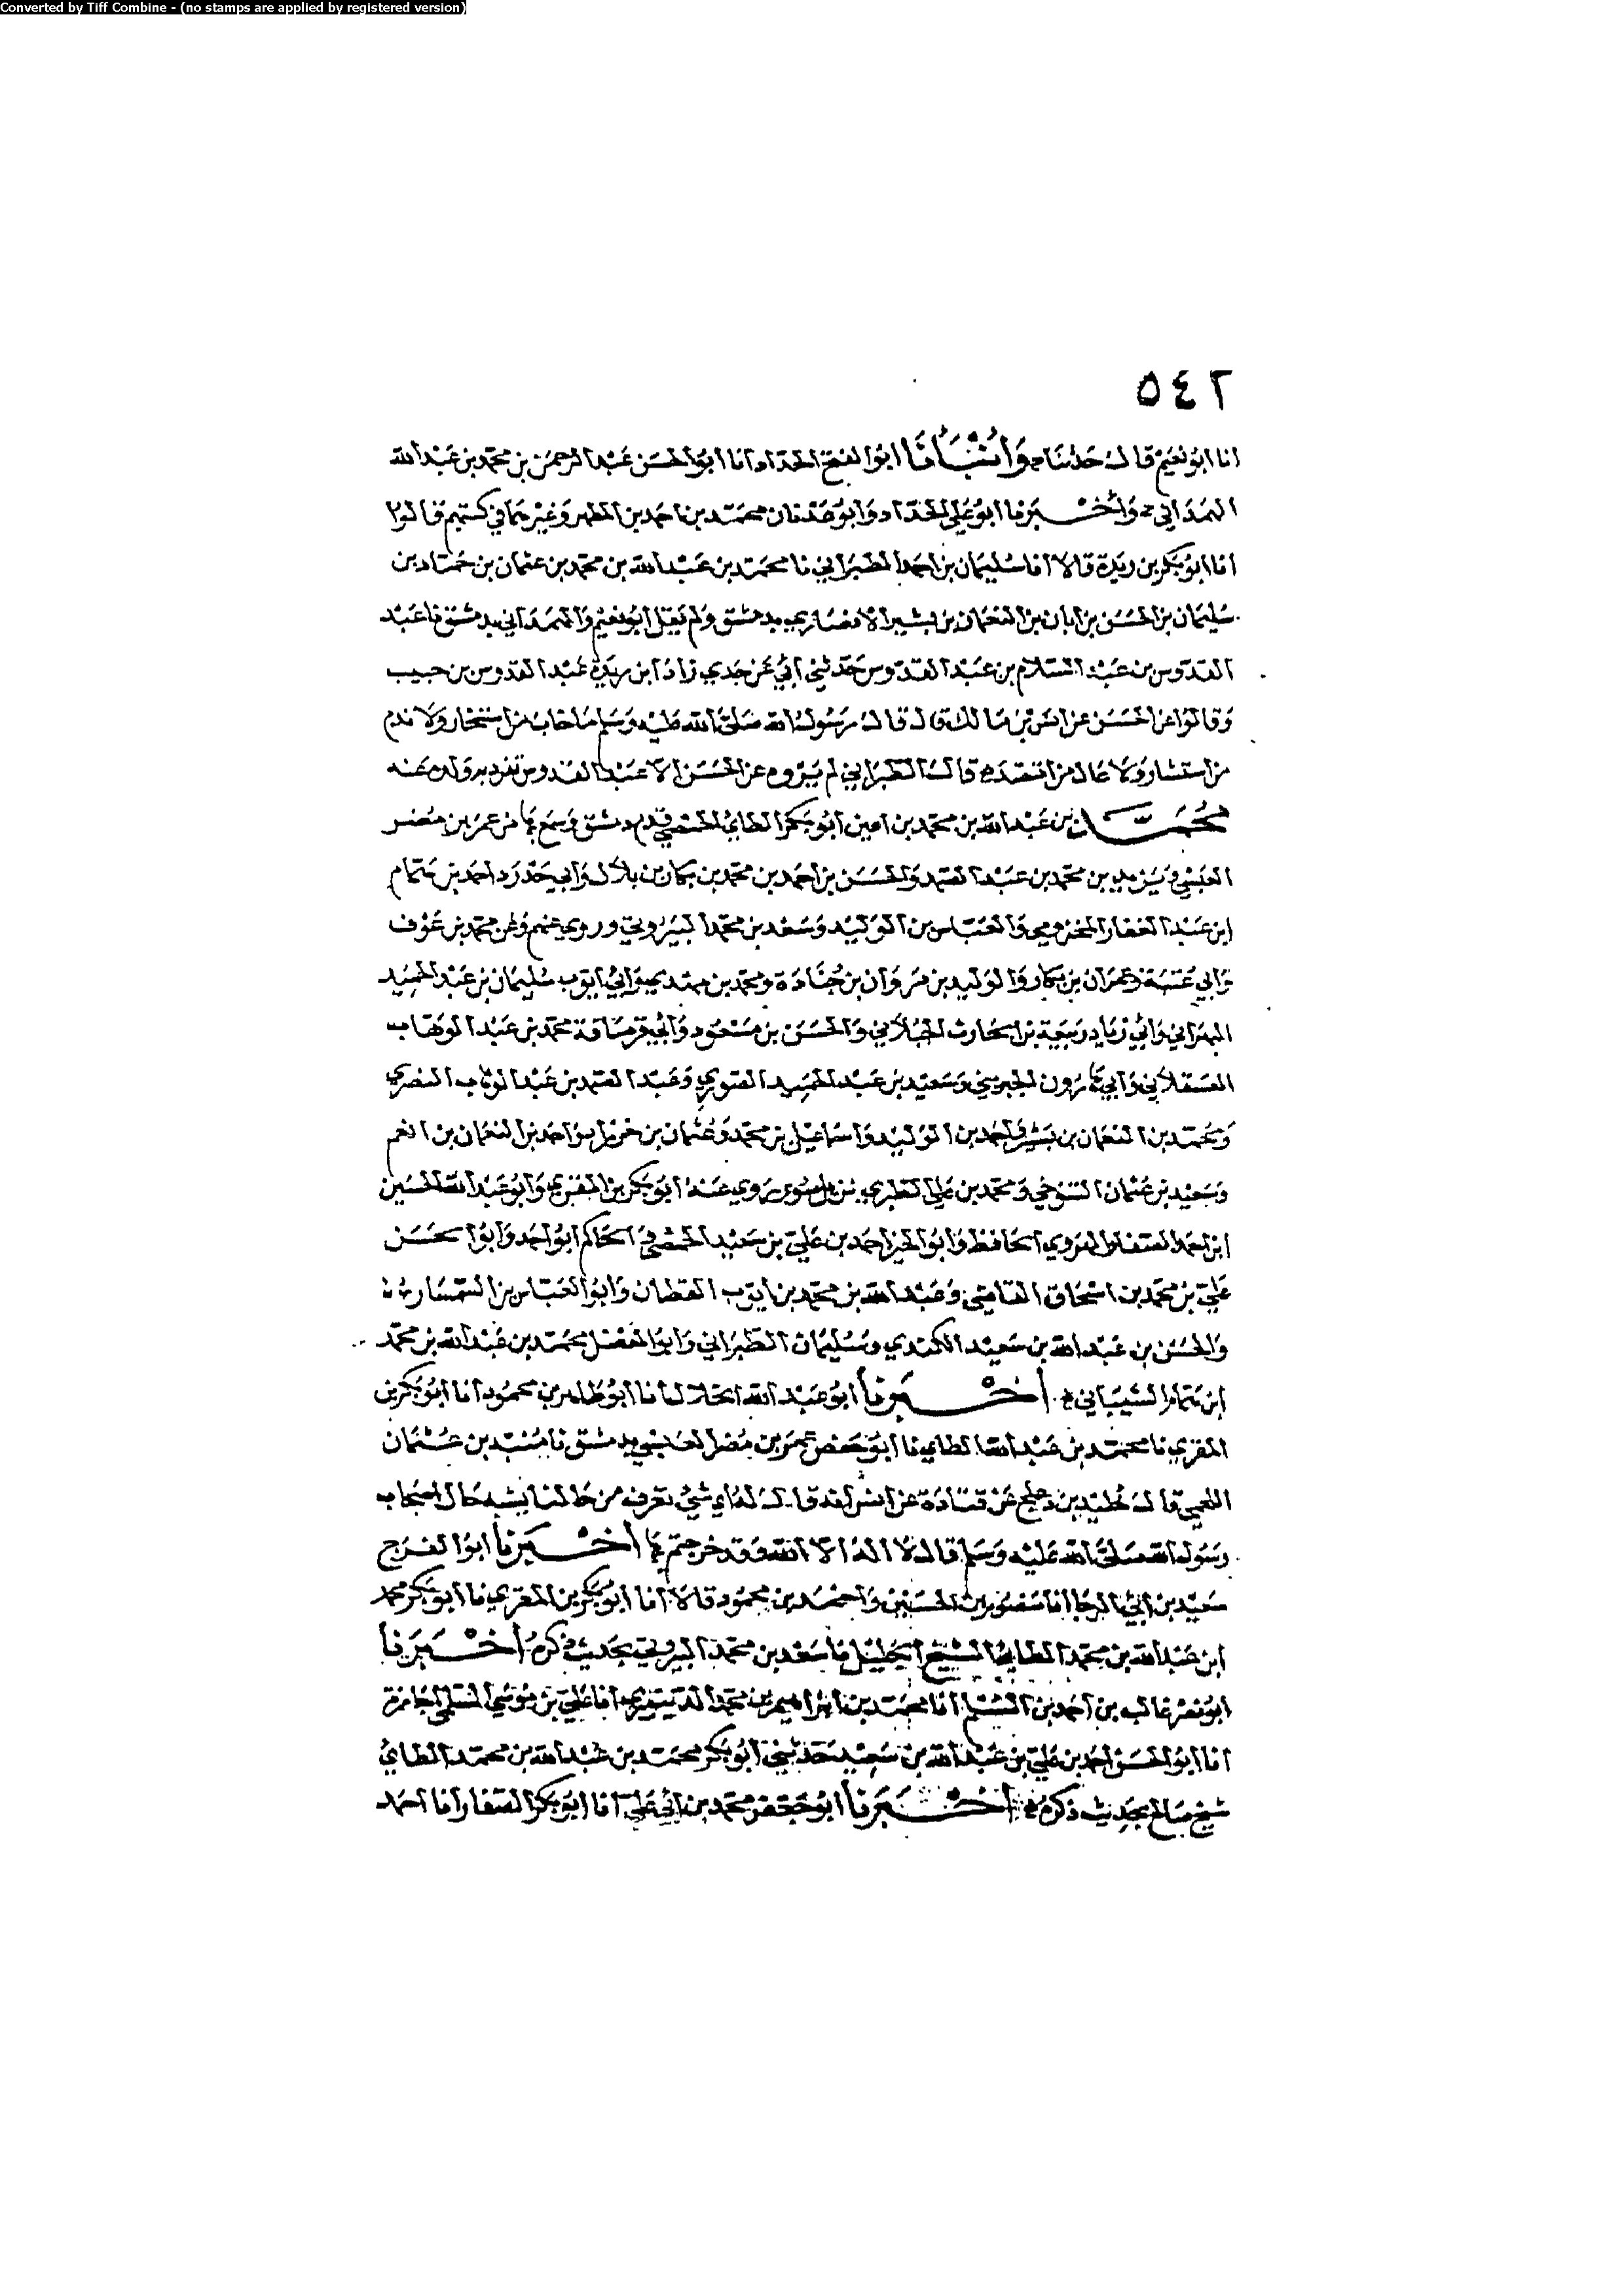 Converted by Tiff Combine - (no stamps are applied by registered version)
٥٤٢
انا ابو نعيم قال حدثناه وَانْبَأنَا ابو الفتح الحداد انا ابو الحسن عبد الرحمن بن محمد بن عبد الله
الهمداني ح وَاَخْبَرنا ابو علي الحداد وابو عدنان محمد بن احمد بن المطهر وغيرهما في كتبهم قالوا
انا ابو بكر بن ريذة قالا انا سليمان بن احمد الطبراني نا محمد بن عبد الله بن محمد بن عثمان بن حماد بن
سليمان بن الحسن بن ابان بن النعمان بن بشير الانصاري بدمشق ولم يقل ابو نعيم والهمداني بدمشق نا عبد
القدوس بن عبد السلام بن عبد القدوس حدثني ابي عن جدي زاد ابن ريذة عبد القدوس بن حبيب
وقالوا عن الحسن عن انس بن مالك قال قال رسول الله صلى الله عليه وسلم ما خاب من استخار ولا ندم
من استشار ولا عال من اقتصد قال الطبراني لم يروه عن الحسن الا عبد القدوس تفرد به ولده عنه
محمد بن عبد الله بن محمد بن امين ابو بكر الطاي الحمصي قدم دمشق وسمع بها من عمر بن مضر
العبسي ويزيد بن محمد بن عبد الصمد والحسن بن احمد بن محمد بن بكار بن بلال وابي حدرد احمد بن همام
ابن عبد الغفار المخزومي والعباس بن الوليد وسعد بن محمد البيروتي وروى عنهم وعن محمد بن عوف
وابي عتبة وعمران بن بكار والوليد بن مروان بن جنادة ومحمد بن مهدي وابي ايوب سليمان بن عبد الحميد
البهراني وابي زياد ربيعة بن الحارث الجبلاني والحسن بن مسعود وابي قرصافة محمد بن عبد الوهاب
العسقلاني وابي هارون الجبريني وسعيد بن عبد الحميد الصوري وعبد الصمد بن عبد الوهاب النصري
ومحمد بن النعمان بن بشير واحمد بن الوليد واسماعيل بن محمد وعثمان بن خرزاد واحمد بن النعمان بن
وسعيد بن عثمان التنوخي ومحمد بن علي الطبري روى عنه ابو بكر بن المقري وابو عبد الله الحسين
ابن احمد الصفار الهروي الحافظ وابو الخير احمد بن علي بن سعيد الحمصي الحاكم ابو احمد وابو الحسن
علي بن محمد بن اسحاق القاضي وعبد الله بن محمد بن ايوب القطان وابو العباس بن السمسار
والحسن بن عبد الله بن سعيد الكندي وسليمان الطبراني وابو الفضل محمد بن عبد الله بن محمد
ابن همام الشيباني اَخْبَرنا ابو عبد الله الخلال انا ابو طاهر بن محمود انا ابو بكر بن
المقري نا محمد بن عبد الله الطاي نا ابو حفص عمر بن مضر العبسي بدمشق نا منبه بن عثمان
اللخمي قال خليد بن دعلج عن قتادة عن انس قال له اي شي تعرف من حالنا يشبه حال اصحاب
رسول الله صلى الله عليه وسلم قال لا اله الا الله وقد خرجتم بها اَخْبَرنا ابو الفرج
سعيد بن ابي الرجا انا منصور بن الحسين واحمد بن محمود قالا انا ابو بكر بن المقري نا ابو بكر محمد
ابن عبد الله بن محمد الطاي الشيخ الجليل نا سعد بن محمد البيروتي بحديث ذكره اَخْبَرنا
ابو نصر غالب بن احمد بن المسلم انا محمد بن ابراهيم بن محمد الدينوري انا علي بن موسى السلمي اجازة
انا ابو الحسن احمد بن علي بن عبد الله بن سعيد حدثني ابو بكر محمد بن عبد الله بن محمد الطاي
شيخ صالح بحديث ذكره اَخْبَرنا ابو جعفر محمد بن ابي علي انا ابو بكر الصفار انا احمد